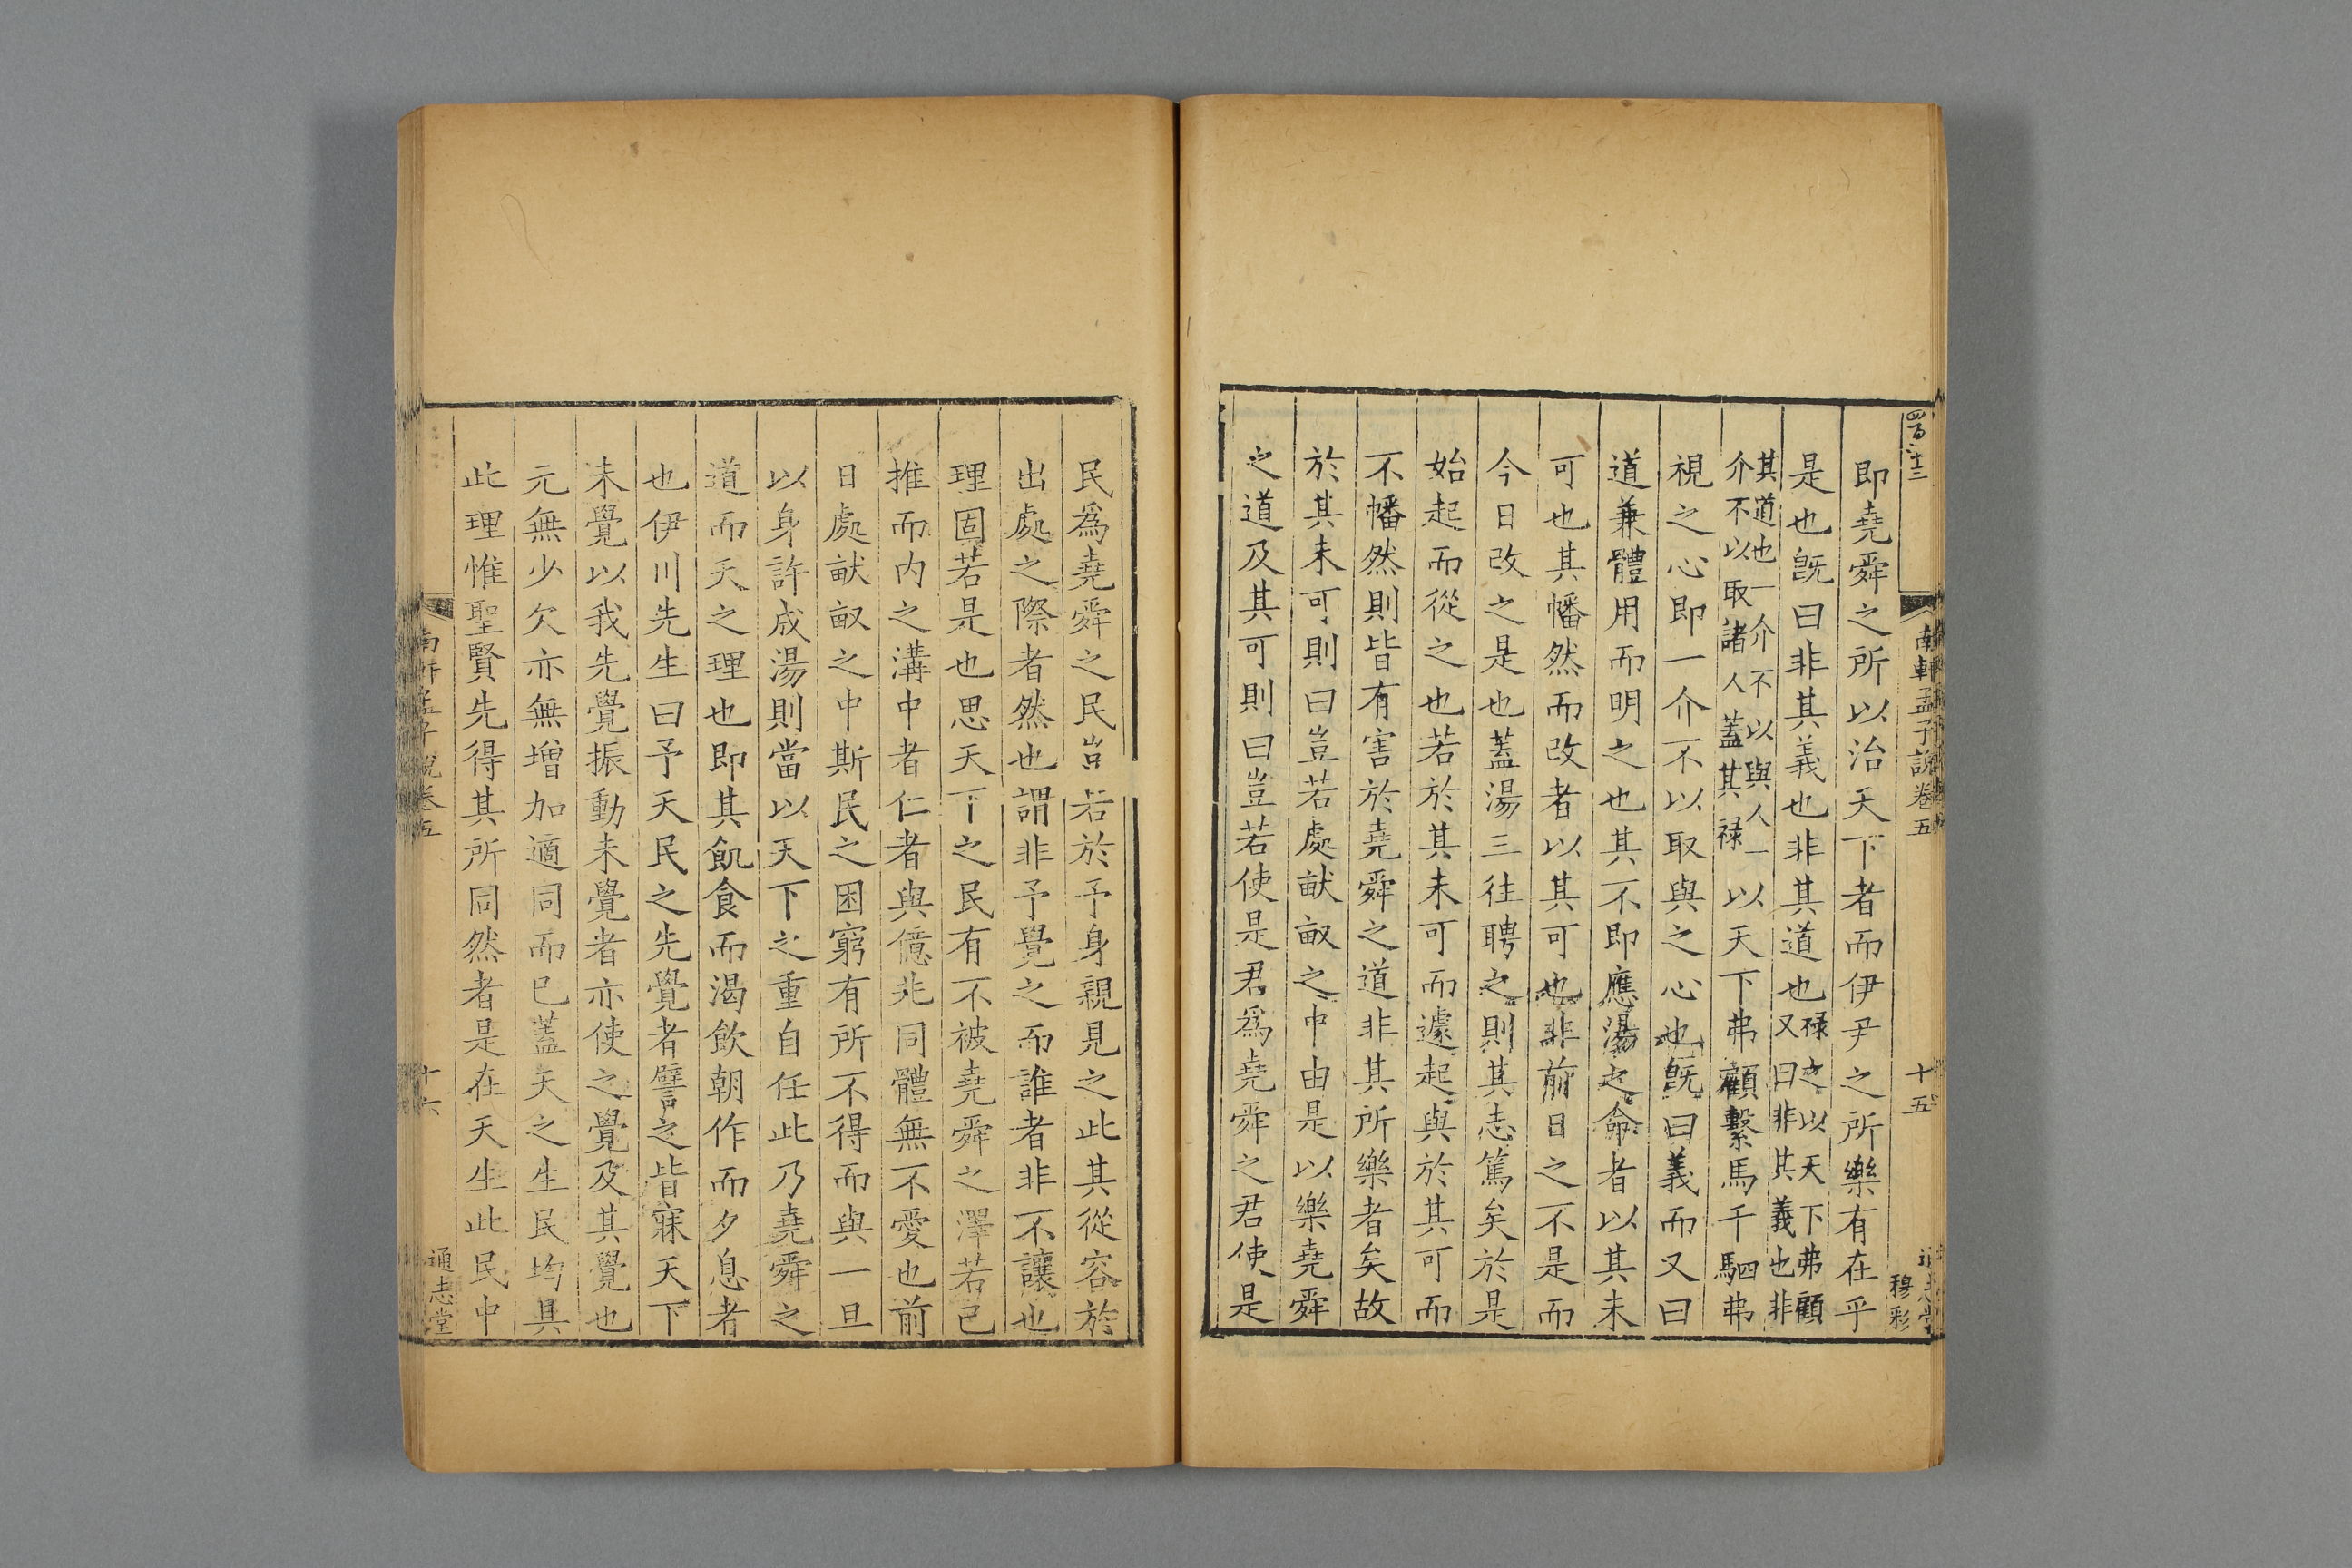 四百六十三
南軒孟子說卷五　十五　通志堂
穆彩
即堯舜之所以治天下者而伊尹之所樂有在乎
是也旣曰非其義也非其道也祿之以天下弗顧又曰非其義也非
其道也一介不以與人一介不以取諸人蓋其祿以天下弗顧繫馬千駟弗
視之心即一介不以取與之心也旣曰義而又曰
道兼體用而明之也其不即應湯之命者以其未
可也其幡然而改者以其可也非前日之不是而
今日改之是也蓋湯三往聘之則其志篤矣於是
始起而從之也若於其未可而遽起與於其可而
不幡然則皆有害於堯舜之道非其所樂者矣故
於其未可則曰豈若處畎畝之中由是以樂堯舜
之道及其可則曰豈若使是君爲堯舜之君使是
民爲堯舜之民豈若於予身親見之此其從容於
出處之際者然也謂非予覺之而誰者非不讓也
理固若是也思天下之民有不被堯舜之澤若己
推而内之溝中者仁者與億兆同體無不愛也前
日處畎畝之中斯民之困窮有所不得而與一旦
以身許成湯則當以天下之重自任此乃堯舜之
道而天之理也即其飢食而渴飲朝作而夕息者
也伊川先生曰予天民之先覺者譬之皆寐天下
未覺以我先覺振動未覺者亦使之覺及其覺也
元無少欠亦無增加適同而已蓋天之生民均具
此理惟聖賢先得其所同然者是在天生此民中
南軒孟子說卷五　十六　通志堂